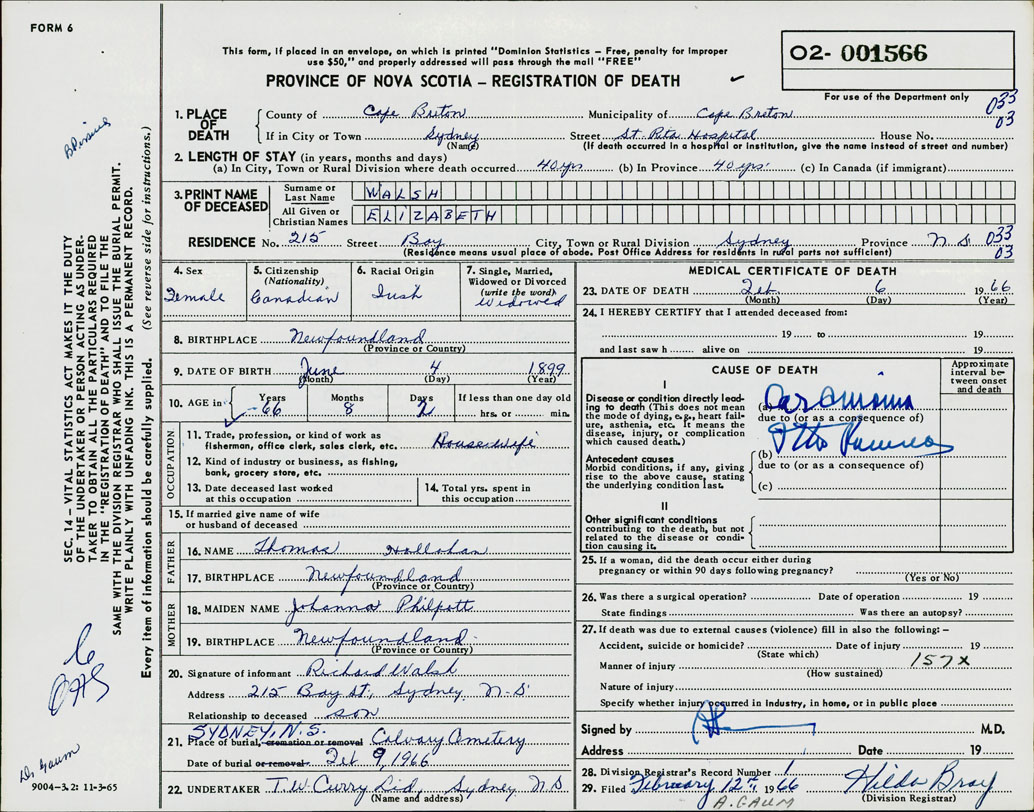 FORM 6
This form, if placed in an envelope, on which is printed "Dominion Statistics – Free, penalty for improper
use $50," and properly addressed will pass through the mail "FREE"
O2- 001566
PROVINCE OF NOVA SCOTIA – REGISTRATION OF DEATH
For use of the Department only
033
03
1. PLACE OF DEATH County of Cape Breton Municipality of Cape Breton
If in City or Town Sydney (Name) Street St. Rita Hospital House No.
(If death occurred in a hospital or institution, give the name instead of street and number)
2. LENGTH OF STAY (in years, months and days)
(a) In City, Town or Rural Division where death occurred 40 yrs. (b) In Province 40 yrs. (c) In Canada (if immigrant)
3. PRINT NAME OF DECEASED Surname or Last Name WALSH
All Given or Christian Names ELIZABETH
RESIDENCE No. 215 Street Bay City, Town or Rural Division Sydney Province N.S 033
03
(Residence means usual place of abode. Post Office Address for residents in rural parts not sufficient)
4. Sex Female
5. Citizenship (Nationality) Canadian
6. Racial Origin Irish
7. Single, Married, Widowed or Divorced (write the word) Widowed
8. BIRTHPLACE Newfoundland
(Province or Country)
9. DATE OF BIRTH June 4 1899
(Month) (Day) (Year)
10. AGE in Years 66 Months 8 Days 2 If less than one day old hrs. or min.
OCCUPATION
11. Trade, profession, or kind of work as
fisherman, office clerk, sales clerk, etc. Housewife
12. Kind of industry or business, as fishing,
bank, grocery store, etc.
13. Date deceased last worked at this occupation
14. Total yrs. spent in this occupation
15. If married give name of wife
or husband of deceased
FATHER
16. NAME Thomas Hollohan
17. BIRTHPLACE Newfoundland
(Province or Country)
MOTHER
18. MAIDEN NAME Johanna Philpott
19. BIRTHPLACE Newfoundland
(Province or Country)
20. Signature of informant Richard Walsh
Address 215 Bay St., Sydney N.S
Relationship to deceased son
SYDNEY, N.S.
21. Place of burial, cremation or removal Calvary Cemetery
Date of burial or removal Feb 9, 1966
22. UNDERTAKER T.W. Curry Ltd, Sydney NS
(Name and address)
MEDICAL CERTIFICATE OF DEATH
23. DATE OF DEATH Feb. 6 1966
(Month) (Day) (Year)
24. I HEREBY CERTIFY that I attended deceased from:
19 to 19
and last saw h alive on 19
CAUSE OF DEATH
Approximate interval between onset and death
I
Disease or condition directly lead-
ing to death (This does not mean
the mode of dying, e.g., heart fail-
ure, asthenia, etc. It means the
disease, injury, or complication
which caused death.)
(a) Carcinoma
due to (or as a consequence of)
(b)
due to (or as a consequence of)
(c)
Antecedent causes
Morbid conditions, if any, giving
rise to the above cause, stating
the underlying condition last.
II
Other significant conditions
contributing to the death, but not
related to the disease or condi-
tion causing it.
25. If a woman, did the death occur either during
pregnancy or within 90 days following pregnancy?
(Yes or No)
26. Was there a surgical operation? Date of operation 19
State findings Was there an autopsy?
27. If death was due to external causes (violence) fill in also the following: –
Accident, suicide or homicide? Date of injury 19
(State which)
157X
Manner of injury
(How sustained)
Nature of injury
Specify whether injury occurred in industry, in home, or in public place
Signed by M.D.
Address Date 19
28. Division Registrar's Record Number 1
29. Filed February 12th 1966 Hilda Bray
A. GAUM (Division Registrar)
SEC. 14 – VITAL STATISTICS ACT MAKES IT THE DUTY
OF THE UNDERTAKER OR PERSON ACTING AS UNDER-
TAKER TO OBTAIN ALL THE PARTICULARS REQUIRED
IN THE "REGISTRATION OF DEATH" AND TO FILE THE
SAME WITH THE DIVISION REGISTRAR WHO SHALL ISSUE THE BURIAL PERMIT.
WRITE PLAINLY WITH UNFADING INK. THIS IS A PERMANENT RECORD.
Every item of information should be carefully supplied. (See reverse side for instructions.)
Dr Gaum
9004-3.2: 11-3-65